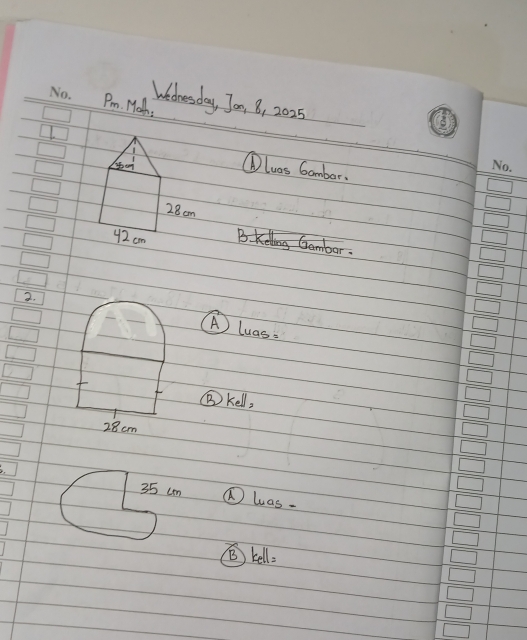 No.
Pm. Math,
Wednesday, Jan, 8, 2025
No.
1.
A Luas Gambar.
28 cm
B. Kelling Gambar.
42 cm
2.
A Luas =
B Kell,
28 cm
35 cm
A Luas =
B Kell: